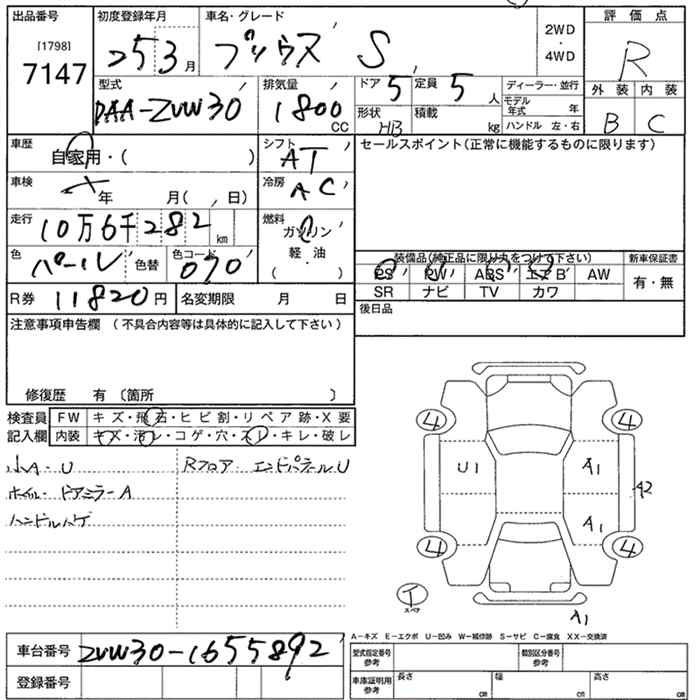 出品番号 初度登録年月 車名・グレード 2WD ・ 4WD 評価点
[1798]
7147 253月 プリウス S R
型式 排気量 ドア 5 定員 5人 ディーラー・並行 外装 内装
DAA-ZVW30 1800CC 形状 HB 積載 kg モデル年式 年 B C
ハンドル 左・右
車歴 自家用・( ) シフト AT セールスポイント(正常に機能するものに限ります)
車検 年 月( 、 日) 冷房 AC
走行 10万6千282km 燃料 ガソリン 軽・油 ( )
色 パール 色替 色コード 070 装備品(純正品に限り丸をつけて下さい) 新車保証書
PS PW ABS エアB AW 有・無
SR ナビ TV カワ
R券 11820円 名変期限 月 日 後日品
注意事項申告欄 (不具合内容等は具体的に記入して下さい)
修復歴 有 〔箇所 〕
検査員 FW キズ・飛石・ヒビ割・リペア跡・X要
記入欄 内装 キズ・汚レ・コゲ・穴・スレ・キレ・破レ
小A・U Rフロア・エンドパネルU
ホイル・ドアミラーA
ハンドルハゲ
4 4
U1 A1 A2
A1
4 4
T スペア A1
A-キズ E-エクボ U-凹み W-補修跡 S-サビ C-腐食 XX-交換済
車台番号 ZVW30-1655892 型式指定番号 参考 類別区分番号 参考
登録番号 車庫証明用 参考 長さ cm 幅 cm 高さ cm